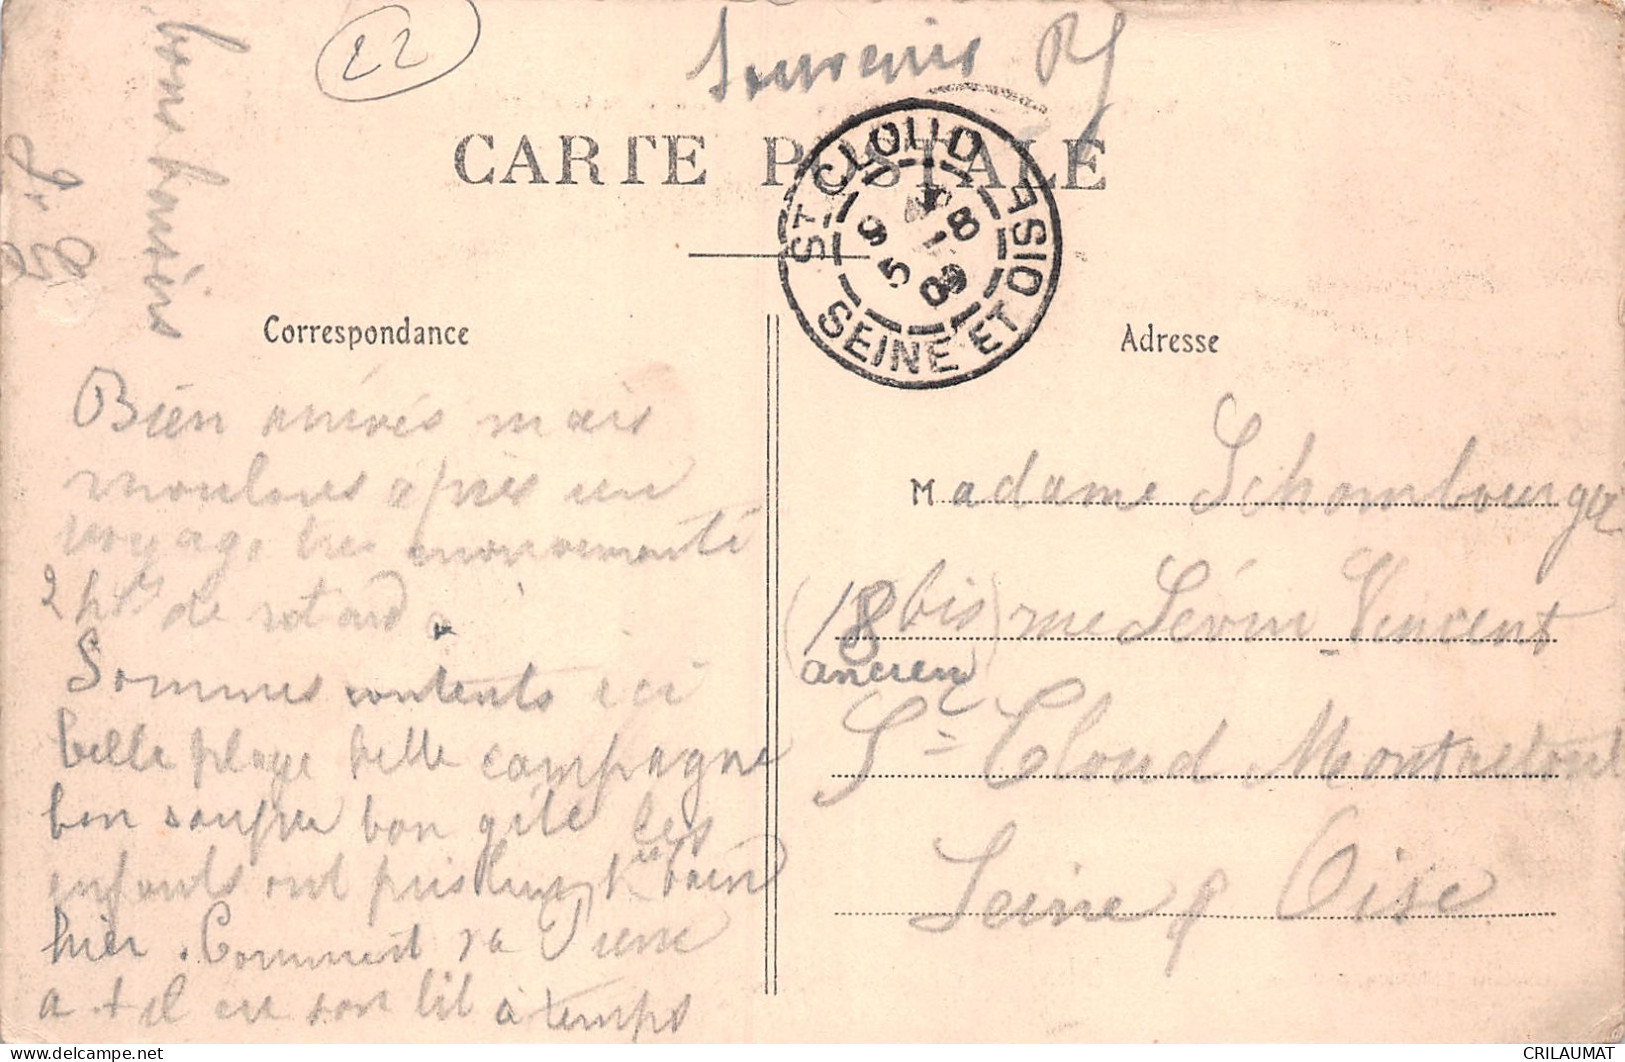 22
Souvenirs
CARTE POSTALE
ST CLOUD
9 8
5 09
SEINE ET OISE
bons baisers
Correspondance
Adresse
Bien arrivés mais
moulues après un
voyage tres mouvementé
2 hres de retard.
Sommes contents ici
belle plage belle campagne
bon souper bon gîte les
enfants ont pris leur 1er bain
hier. Comment va Pierre
a-t-il eu son lit à temps
Madame Schombourger
(18 bis) rue Sévin Vincent
ancien
St Cloud Montretout
Seine & Oise
CRILAUMAT